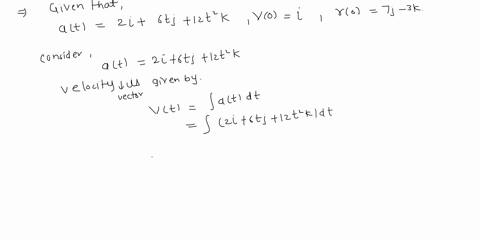 ⇒ Given that,
a(t) = 2i + 6tj + 12t²k , V(0) = i , r(0) = 7j - 3k
consider,
a(t) = 2i + 6tj + 12t²k
velocity is given by.
vector
V(t) = ∫ a(t) dt
= ∫ (2i + 6tj + 12t²k) dt